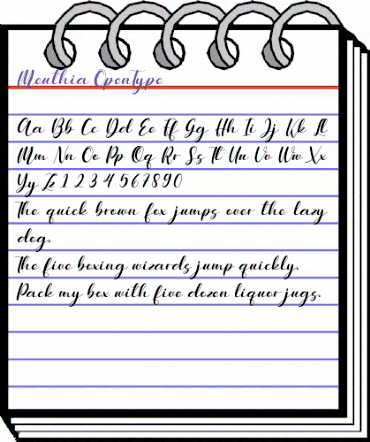 Menthia OpenType
Aa Bb Cc Dd Ee Ff Gg Hh Ii Jj Kk Ll
Mm Nn Oo Pp Qq Rr Ss Tt Uu Vv Ww Xx
Yy Zz 1 2 3 4 5 6 7 8 9 0
The quick brown fox jumps over the lazy
dog.
The five boxing wizards jump quickly.
Pack my box with five dozen liquor jugs.